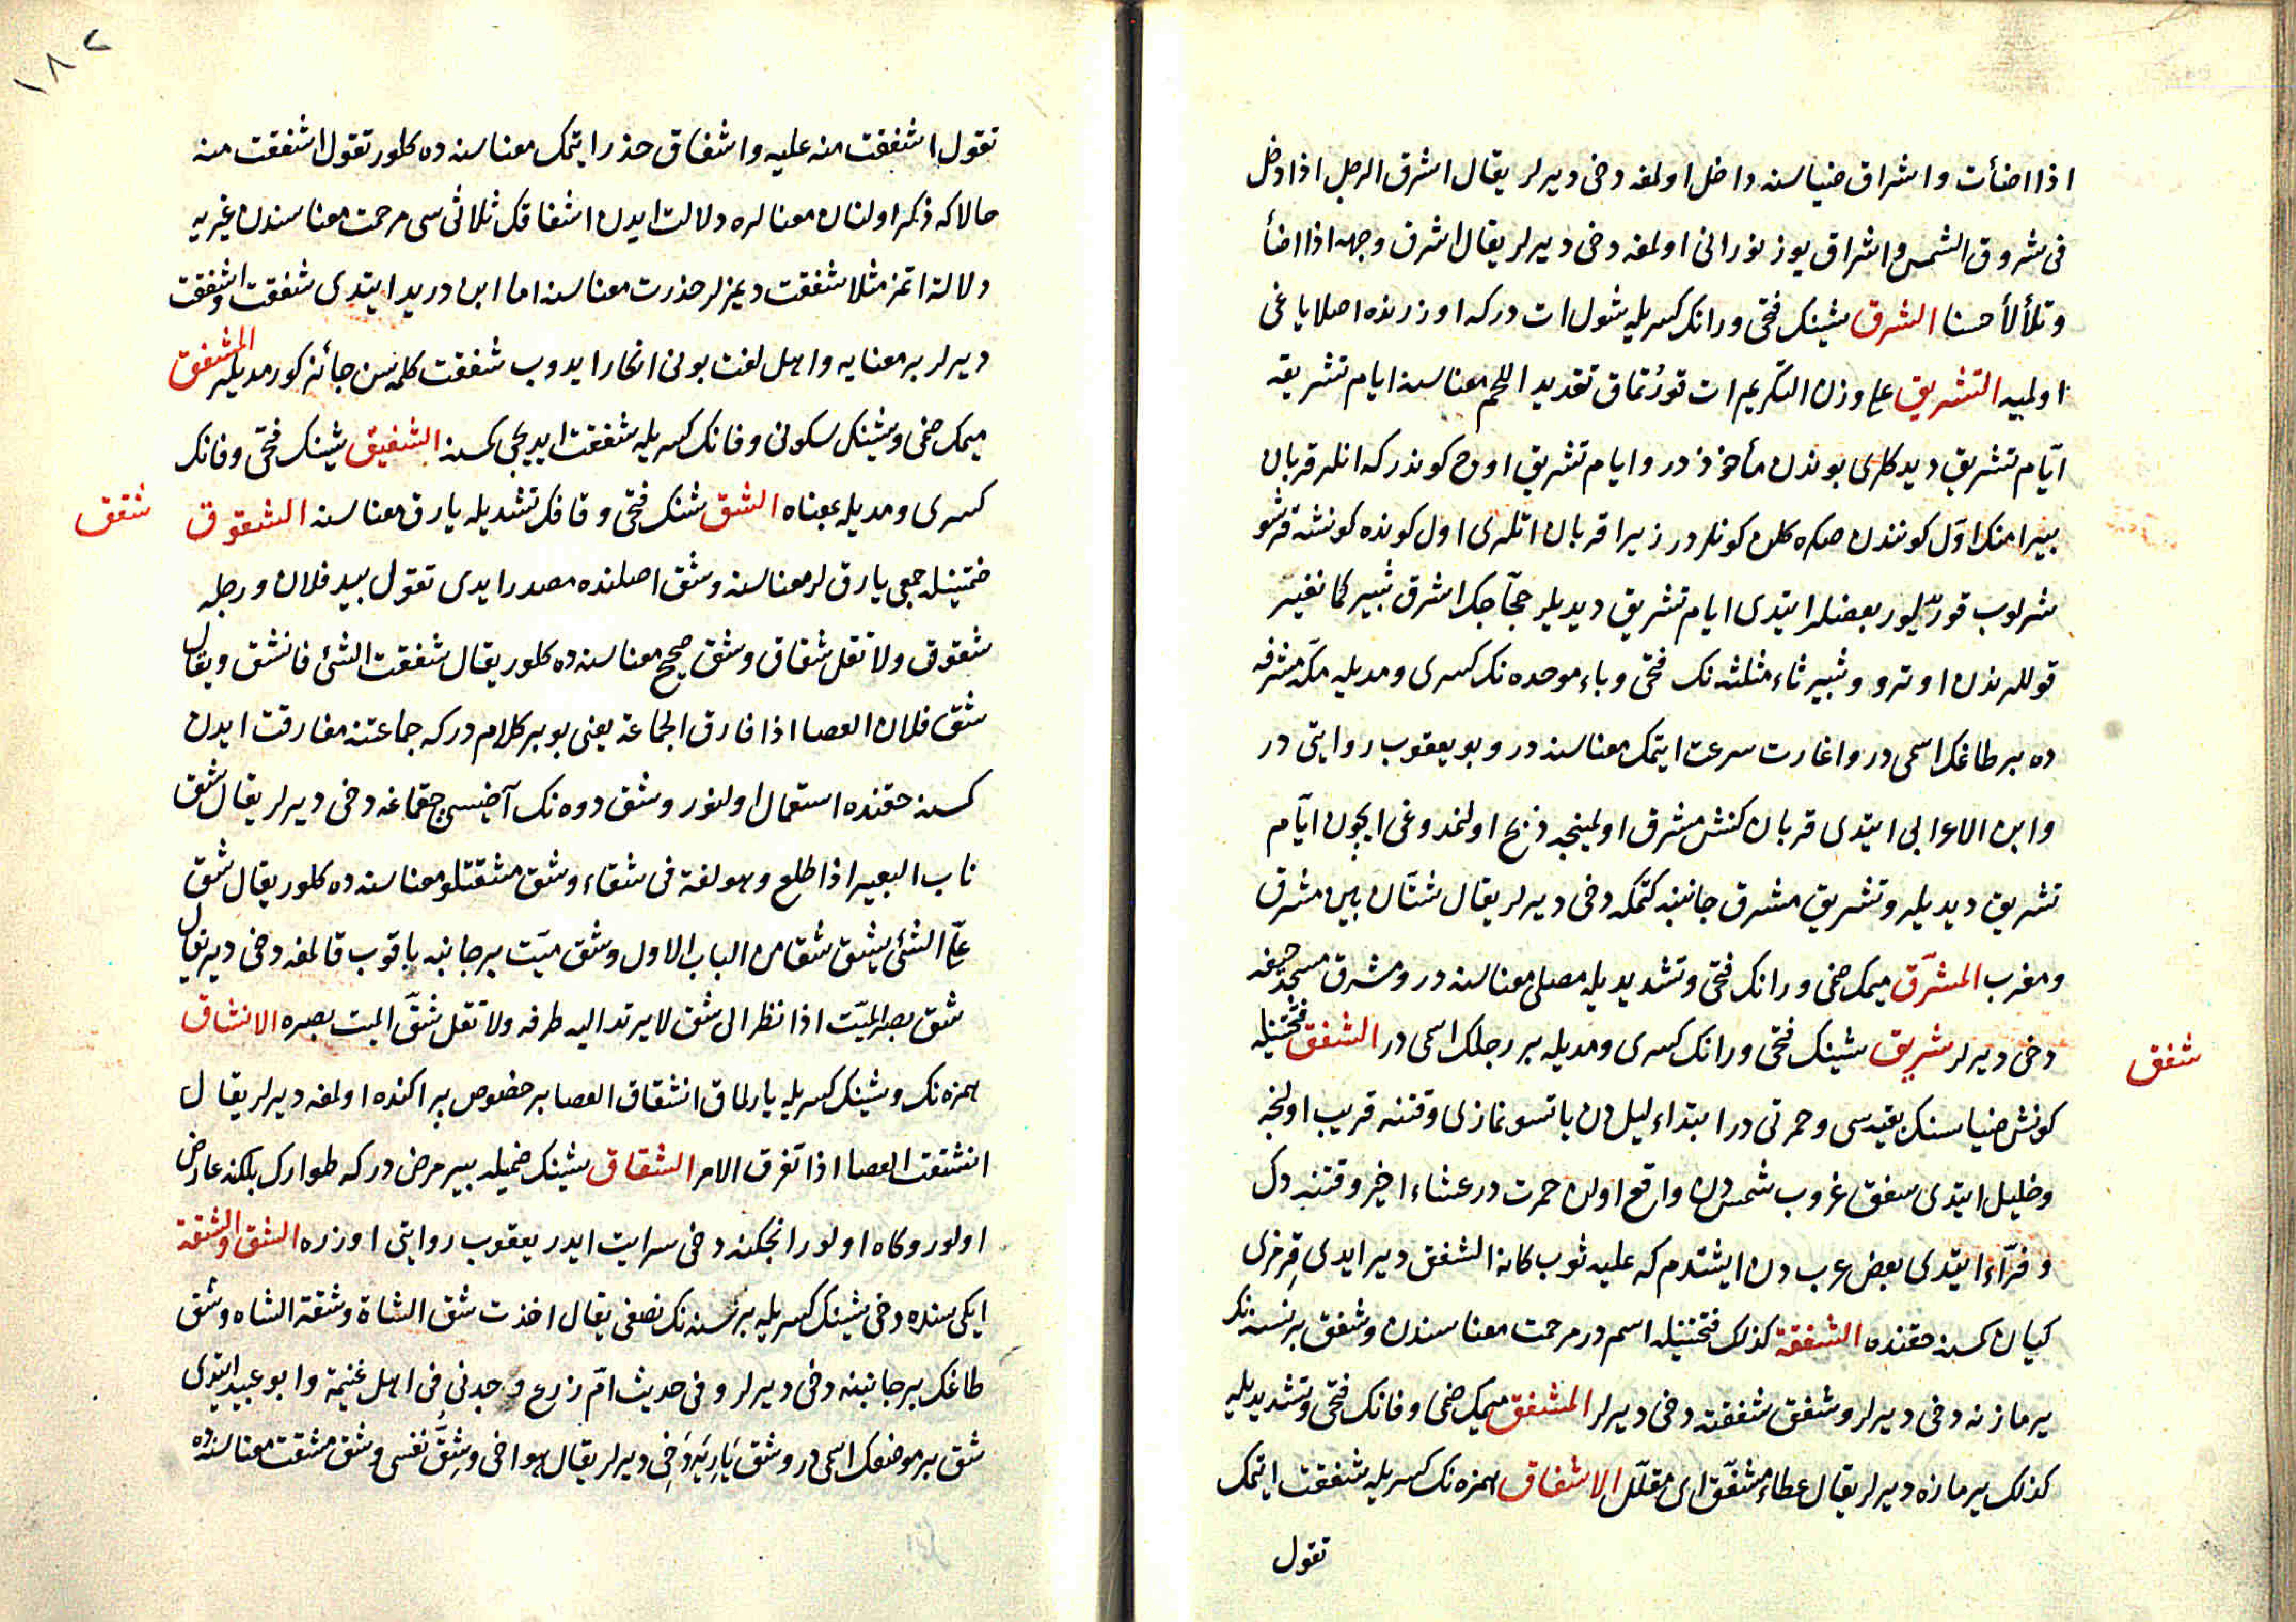 اذا اضأت واشراق ضیاسنه داخل اولمغه دخی دیرلر یقال اشرق الرجل اذا دخل
فی شروق الشمس واشراق یوز نورانی اولمغه دخی دیرلر یقال اشرق وجهه اذا اضأ
وتلألأ حسنا الشرق شینک فتحی ورانک کسریله شول ات درکه اوزرنده اصلا یاغی
اولمیه التشریق علی وزن التکریم ات قورُتماق تقدید اللحم معناسنه ایام تشریقه
ایّام تشریق دیدکلری بوندن مأخوذدر وایام تشریق اوچ کوندرکه انلر قربان
بیرامنک اوّل کونندن صکره کلن کونلردر زیرا قربان اتلری اول کونده کونشه قرشو
شرلوب قوریلور بعضلر ایتدی ایام تشریق دیدیلر حجّاجک اشرق ثبیر کما نغیر
قوللرندن اوترو وثبیر ثاء مثلثه نک فتحی وباء موحده نک کسری ومدیله مکّه مشرفه
ده بر طاغک اسمی در واغارت سرعت ایتمک معناسنه در وبو یعقوب روایتی در
وابن الاعرابی ایتدی قربان کنش مشرق اولمینجه ذبح اولنمدوغی ایچون ایّام
تشریق دیدیلر وتشریق مشرق جانبنه کتمکه دخی دیرلر یقال شتّان بین مشرق
ومغرب المشرَّق میمک ضمی ورانک فتحی وتشدیدیله مصلی معناسنه در ومشرق مسجد خیفه
دخی دیرلر شریق شینک فتحی ورانک کسری ومدیله بر رجلک اسمی در الشفق فتحتینله
شفق
کونش ضیاسنک بقیه سی وحمرتی در ابتداء لیل دن یاتسو نمازی وقتنه قریب اولنجه
وخلیل ایتدی شفق غروب شمس دن واقع اولان حمرت در عشاء اخیر وقتنه دک
وفرّاء ایتدی بعض عرب دن ایشتدم که علیه ثوب کانه الشفق دیر ایدی قِرمزی
کیان کمسنه حقنده الشفقة کذلک فتحتینله اسم در مرحمت معناسندن وشفق بر نسنه نک
یرمازنه دخی دیرلر وشفق شفقته دخی دیرلر المشفق میمک ضمی وفانک فتحی وتشدیدیله
کذلک یرمازه دیرلر یقال عطاء مشفّق ای مقلّل الاشفاق همزه نک کسریله شفقت ایتمک
تقول
١٨٢
تقول اشفقت منه علیه واشفاق حذر ایتمک معناسنه ده کلور تقول اشفقت منه
حالا که ذکر اولنان معنالره دلالت ایدن اشفاقک ثلاثی سی مرحمت معناسندن غیریه
دلالة اتمز مثلا شفقت دیمزلر حذرت معناسنه اما ابن درید ایتدی شفقت واشفقت
دیرلر بر معنایه واهل لغت بونی انکار ایدوب شفقت کلمه سن جائز کورمدیلر المشفق
میمک ضمی وشینک سکونی وفانک کسریله شفقت ایدیجی کمسنه الشفیق شینک فتحی وفانک
کسری ومدیله بمعناه الشق شینک فتحی وقافک تشدیله یارق معناسنه الشقوق
شقق
ضمتینله جمعی یارق لر معناسنه وشق اصلنده مصدر ایدی تقول بید فلان ورجله
شقوق ولا تقل شقاق وشق صحیح معناسنه ده کلور یقال شققت الشئ فانشق ویقال
شق فلان العصا اذا فارق الجماعة یعنی بو بر کلام درکه جماعتنه مفارقت ایدن
کمسنه حقنده استعمال اولنور وشق دوه نک آضیسی چقماغه دخی دیرلر یقال شق
ناب البعیر اذا طلع وهو لغة فی شقاء وشق مشقتلو معناسنه ده کلور یقال شق
علیّ الشئ یشق شقا من الباب الاول وشق میّت بر جانبه باقوب قالمغه دخی دیر یقال
شق بصر المیّت اذا نظر الی شق لا یرتد الیه طرفه ولا تقل شقّ المیت بصره الانشقاق
همزه نک وشینک کسریله یارلماق انشقاق العصا بر خصوص پراکنده اولمغه دیرلر یقال
انشقت العصا اذا تفرق الامر الشقاق شینک ضمیله بیر مرض درکه طوارک بلکنه عارض
اولور وکاه اولور انجکنه دخی سرایت ایدر یعقوب روایتی اوزره الشق والشقة
ایکی سنده دخی شینک کسریله بر نسنه نک نصفی یقال اخذت شق الشاة وشقة الشاه وشق
طاغک بر جانبنه دخی دیرلر وفی حدیث امّ زرع وجدنی فی اهل غنیمة وابو عبید ایتدی
شق بر موضعک اسمی در وشق یَارِیَه دَخِی دیرلر یقال هو اخی وشِقّ نفسی وشق مشقت معناسنه ده